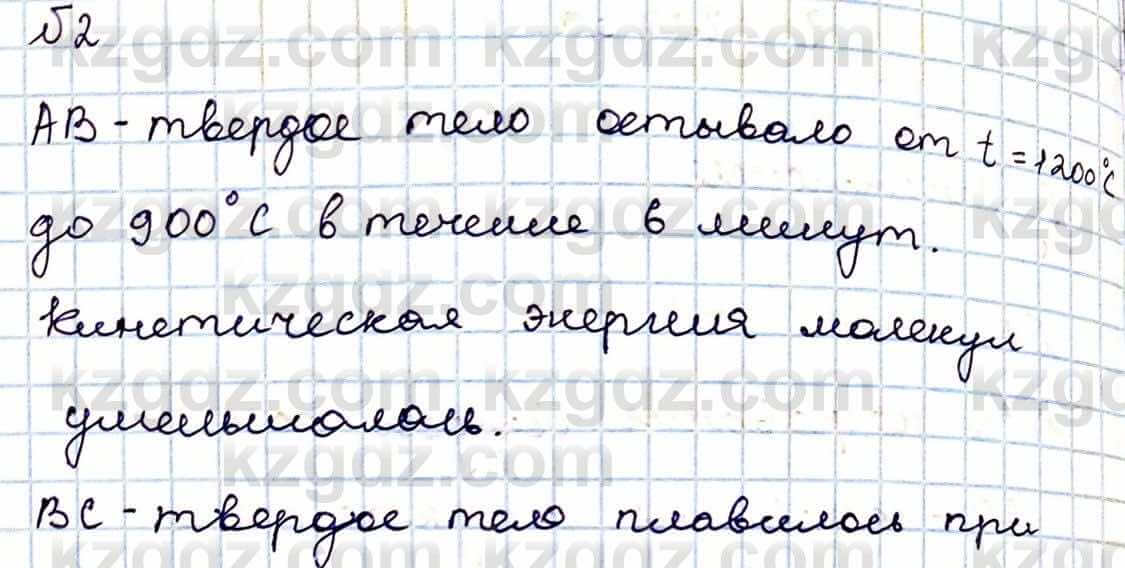 №2
АВ - твердое тело остывало от t = 1200°С
до 900°С в течение 6 минут.
Кинетическая энергия молекул
уменьшалась.
ВС - твердое тело плавилось при
kzgdz.com